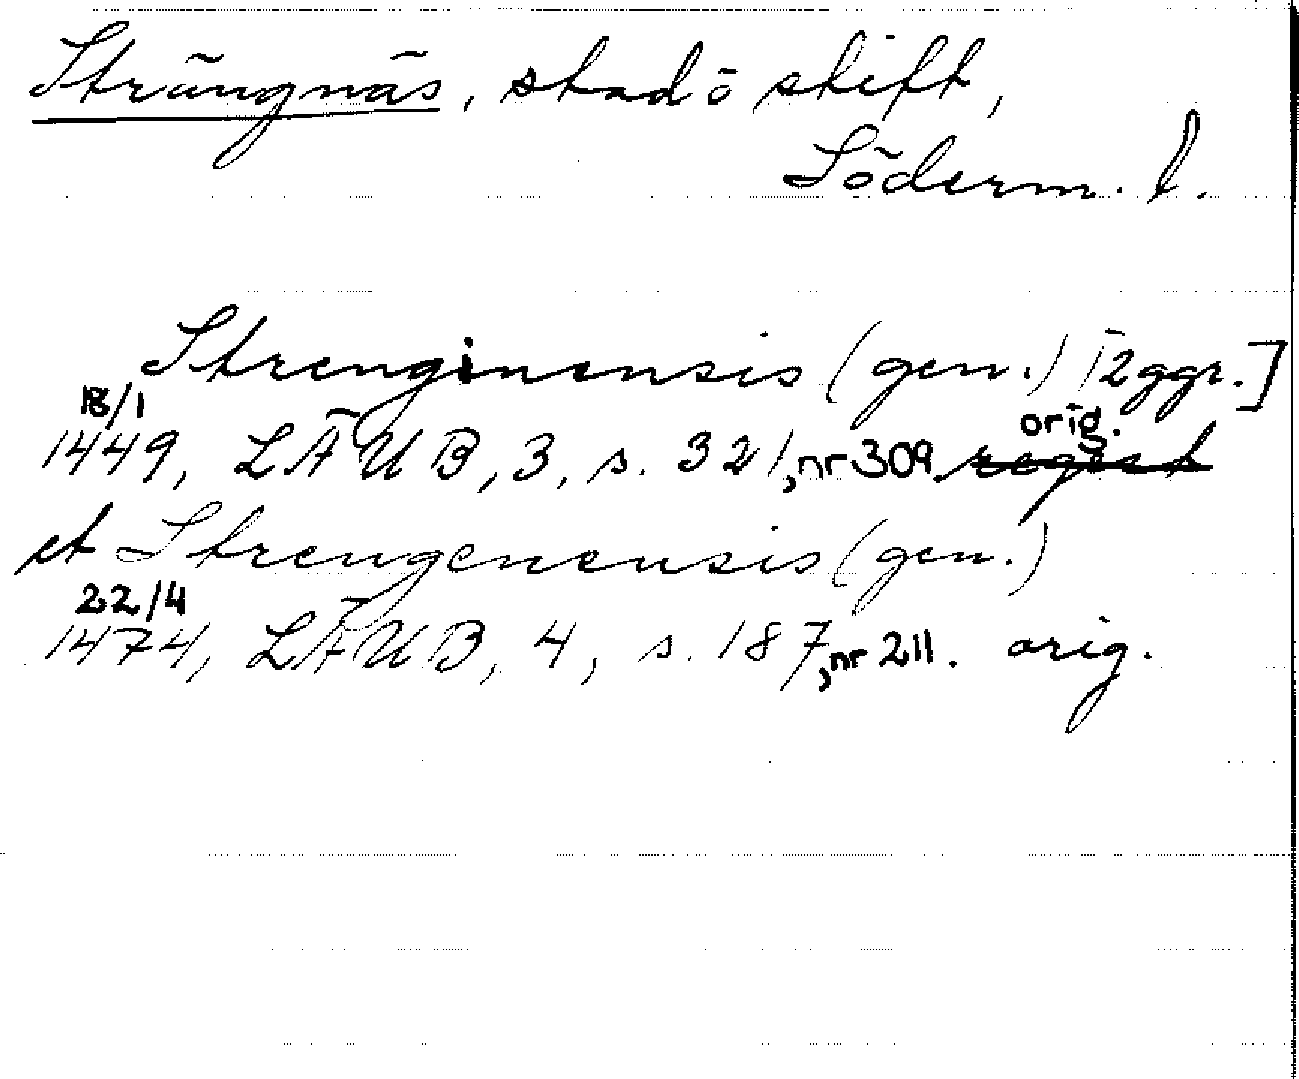 Strängnäs, stad ö stift,
Söderm. l.
Strenginensis (gen.) [2 ggr.]
18/1 orig.
1449, LÄUB, 3, s. 321, nr 309. regest
et Strengenensis (gen.)
22/4
1474, LÄUB, 4, s. 187, nr 211. orig.